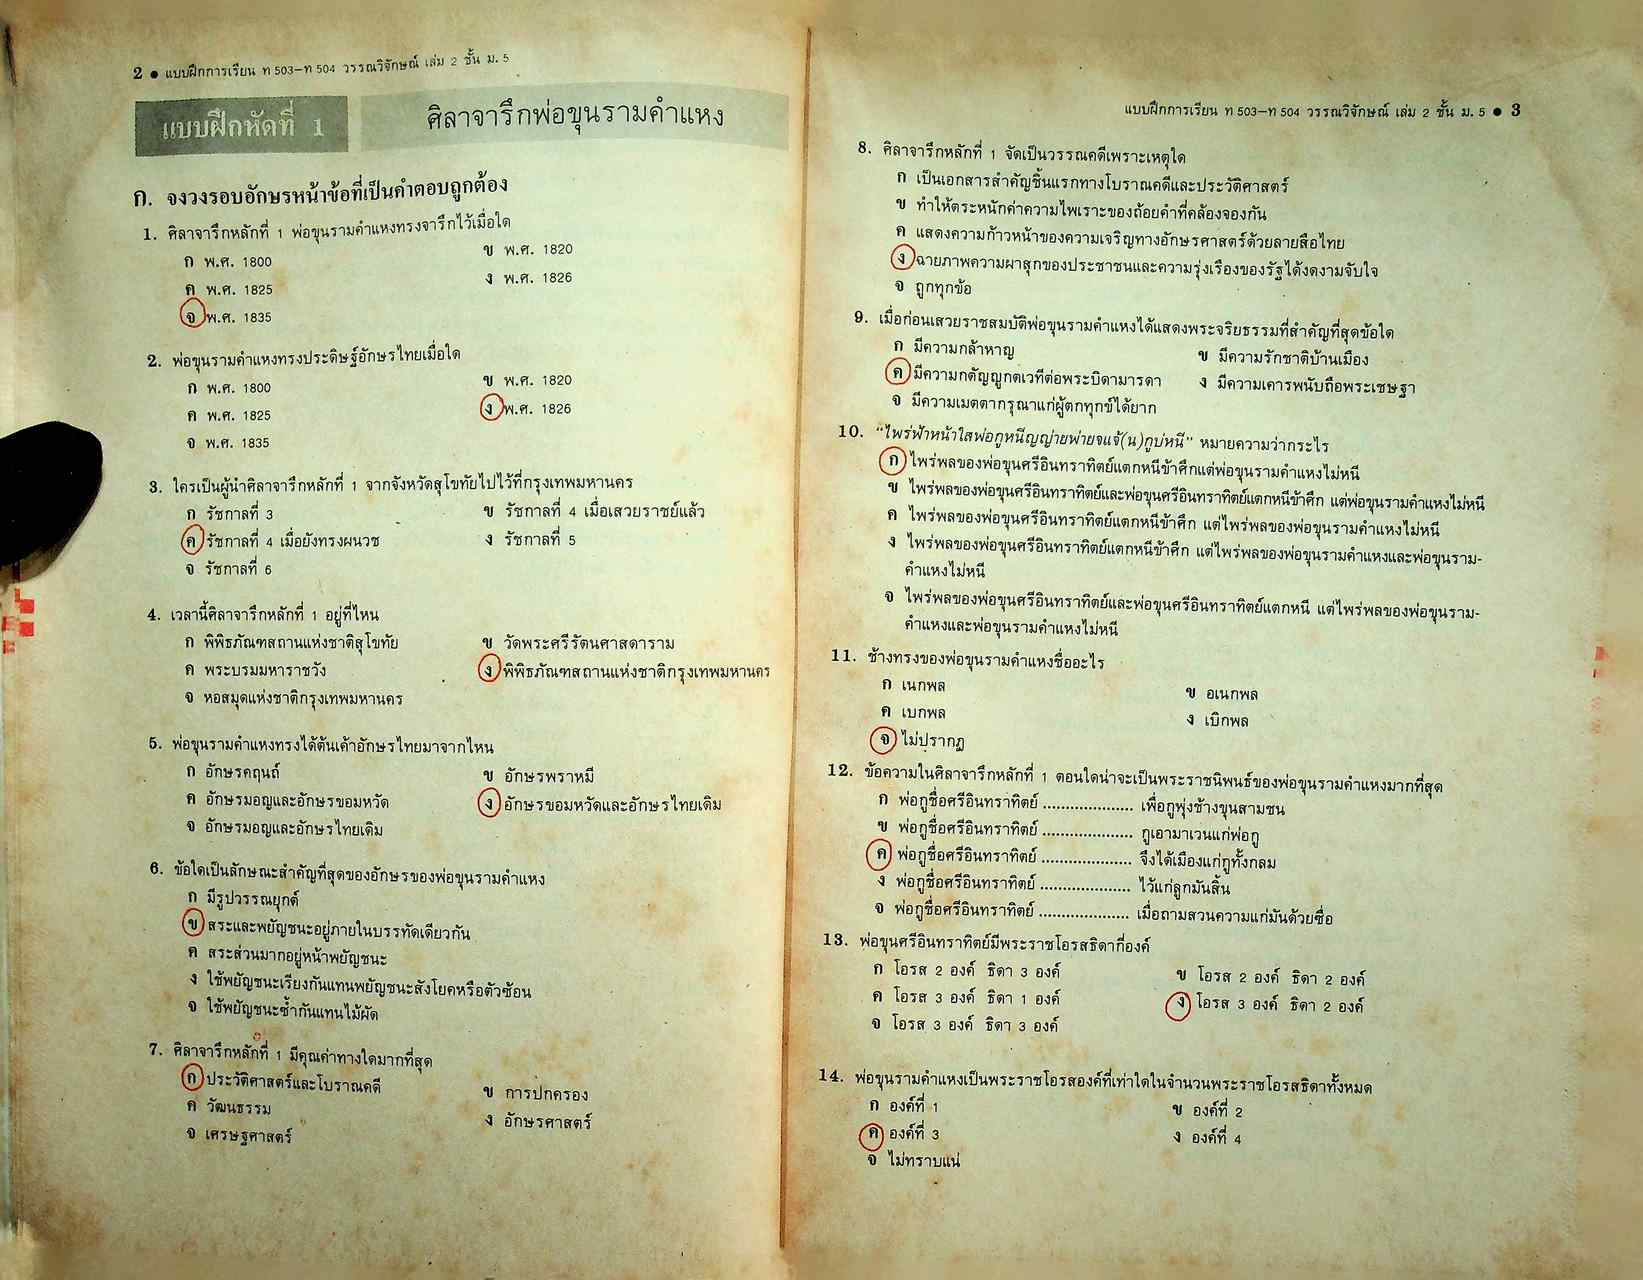 2 ● แบบฝึกการเรียน ท 503–ท 504 วรรณวิจักษณ์ เล่ม 2 ชั้น ม. 5
แบบฝึกหัดที่ 1 ศิลาจารึกพ่อขุนรามคำแหง
ก. จงวงรอบอักษรหน้าข้อที่เป็นคำตอบถูกต้อง
1. ศิลาจารึกหลักที่ 1 พ่อขุนรามคำแหงทรงจารึกไว้เมื่อใด
ก พ.ศ. 1800 ข พ.ศ. 1820
ค พ.ศ. 1825 ง พ.ศ. 1826
จ พ.ศ. 1835
2. พ่อขุนรามคำแหงทรงประดิษฐ์อักษรไทยเมื่อใด
ก พ.ศ. 1800 ข พ.ศ. 1820
ค พ.ศ. 1825 ง พ.ศ. 1826
จ พ.ศ. 1835
3. ใครเป็นผู้นำศิลาจารึกหลักที่ 1 จากจังหวัดสุโขทัยไปไว้ที่กรุงเทพมหานคร
ก รัชกาลที่ 3 ข รัชกาลที่ 4 เมื่อเสวยราชย์แล้ว
ค รัชกาลที่ 4 เมื่อยังทรงผนวช ง รัชกาลที่ 5
จ รัชกาลที่ 6
4. เวลานี้ศิลาจารึกหลักที่ 1 อยู่ที่ไหน
ก พิพิธภัณฑสถานแห่งชาติสุโขทัย ข วัดพระศรีรัตนศาสดาราม
ค พระบรมมหาราชวัง ง พิพิธภัณฑสถานแห่งชาติกรุงเทพมหานคร
จ หอสมุดแห่งชาติกรุงเทพมหานคร
5. พ่อขุนรามคำแหงทรงได้ต้นเค้าอักษรไทยมาจากไหน
ก อักษรคฤนถ์ ข อักษรพราหมี
ค อักษรมอญและอักษรขอมหวัด ง อักษรขอมหวัดและอักษรไทยเดิม
จ อักษรมอญและอักษรไทยเดิม
6. ข้อใดเป็นลักษณะสำคัญที่สุดของอักษรของพ่อขุนรามคำแหง
ก มีรูปวรรณยุกต์
ข สระและพยัญชนะอยู่ภายในบรรทัดเดียวกัน
ค สระส่วนมากอยู่หน้าพยัญชนะ
ง ใช้พยัญชนะเรียงกันแทนพยัญชนะสังโยคหรือตัวซ้อน
จ ใช้พยัญชนะซ้ำกันแทนไม้ผัด
7. ศิลาจารึกหลักที่ 1 มีคุณค่าทางใดมากที่สุด
ก ประวัติศาสตร์และโบราณคดี ข การปกครอง
ค วัฒนธรรม ง อักษรศาสตร์
จ เศรษฐศาสตร์
แบบฝึกการเรียน ท 503–ท 504 วรรณวิจักษณ์ เล่ม 2 ชั้น ม. 5 ● 3
8. ศิลาจารึกหลักที่ 1 จัดเป็นวรรณคดีเพราะเหตุใด
ก เป็นเอกสารสำคัญชิ้นแรกทางโบราณคดีและประวัติศาสตร์
ข ทำให้ตระหนักค่าความไพเราะของถ้อยคำที่คล้องจองกัน
ค แสดงความก้าวหน้าของความเจริญทางอักษรศาสตร์ด้วยลายสือไทย
ง ฉายภาพความผาสุกของประชาชนและความรุ่งเรืองของรัฐได้งดงามจับใจ
จ ถูกทุกข้อ
9. เมื่อก่อนเสวยราชสมบัติพ่อขุนรามคำแหงได้แสดงพระจริยธรรมที่สำคัญที่สุดข้อใด
ก มีความกล้าหาญ ข มีความรักชาติบ้านเมือง
ค มีความกตัญญูกตเวทีต่อพระบิดามารดา ง มีความเคารพนับถือพระเชษฐา
จ มีความเมตตากรุณาแก่ผู้ตกทุกข์ได้ยาก
10. “ไพร่ฟ้าหน้าใสพ่อกูหนีญญ่ายพ่ายจแจ้(น)กูบ่หนี” หมายความว่ากระไร
ก ไพร่พลของพ่อขุนศรีอินทราทิตย์แตกหนีข้าศึกแต่พ่อขุนรามคำแหงไม่หนี
ข ไพร่พลของพ่อขุนศรีอินทราทิตย์และพ่อขุนศรีอินทราทิตย์แตกหนีข้าศึก แต่พ่อขุนรามคำแหงไม่หนี
ค ไพร่พลของพ่อขุนศรีอินทราทิตย์แตกหนีข้าศึก แต่ไพร่พลของพ่อขุนรามคำแหงไม่หนี
ง ไพร่พลของพ่อขุนศรีอินทราทิตย์แตกหนีข้าศึก แต่ไพร่พลของพ่อขุนรามคำแหงและพ่อขุนราม-
คำแหงไม่หนี
จ ไพร่พลของพ่อขุนศรีอินทราทิตย์และพ่อขุนศรีอินทราทิตย์แตกหนี แต่ไพร่พลของพ่อขุนราม-
คำแหงและพ่อขุนรามคำแหงไม่หนี
11. ช้างทรงของพ่อขุนรามคำแหงชื่ออะไร
ก เนกพล ข อเนกพล
ค เบกพล ง เบิกพล
จ ไม่ปรากฏ
12. ข้อความในศิลาจารึกหลักที่ 1 ตอนใดน่าจะเป็นพระราชนิพนธ์ของพ่อขุนรามคำแหงมากที่สุด
ก พ่อกูชื่อศรีอินทราทิตย์ .................... เพื่อกูพุ่งช้างขุนสามชน
ข พ่อกูชื่อศรีอินทราทิตย์ .................... กูเอามาเวนแก่พ่อกู
ค พ่อกูชื่อศรีอินทราทิตย์ .................... จึงได้เมืองแก่กูทั้งกลม
ง พ่อกูชื่อศรีอินทราทิตย์ .................... ไว้แก่ลูกมันสิ้น
จ พ่อกูชื่อศรีอินทราทิตย์ .................... เมื่อถามสวนความแก่มันด้วยซื่อ
13. พ่อขุนศรีอินทราทิตย์มีพระราชโอรสธิดากี่องค์
ก โอรส 2 องค์ ธิดา 3 องค์ ข โอรส 2 องค์ ธิดา 2 องค์
ค โอรส 3 องค์ ธิดา 1 องค์ ง โอรส 3 องค์ ธิดา 2 องค์
จ โอรส 3 องค์ ธิดา 3 องค์
14. พ่อขุนรามคำแหงเป็นพระราชโอรสองค์ที่เท่าใดในจำนวนพระราชโอรสธิดาทั้งหมด
ก องค์ที่ 1 ข องค์ที่ 2
ค องค์ที่ 3 ง องค์ที่ 4
จ ไม่ทราบแน่